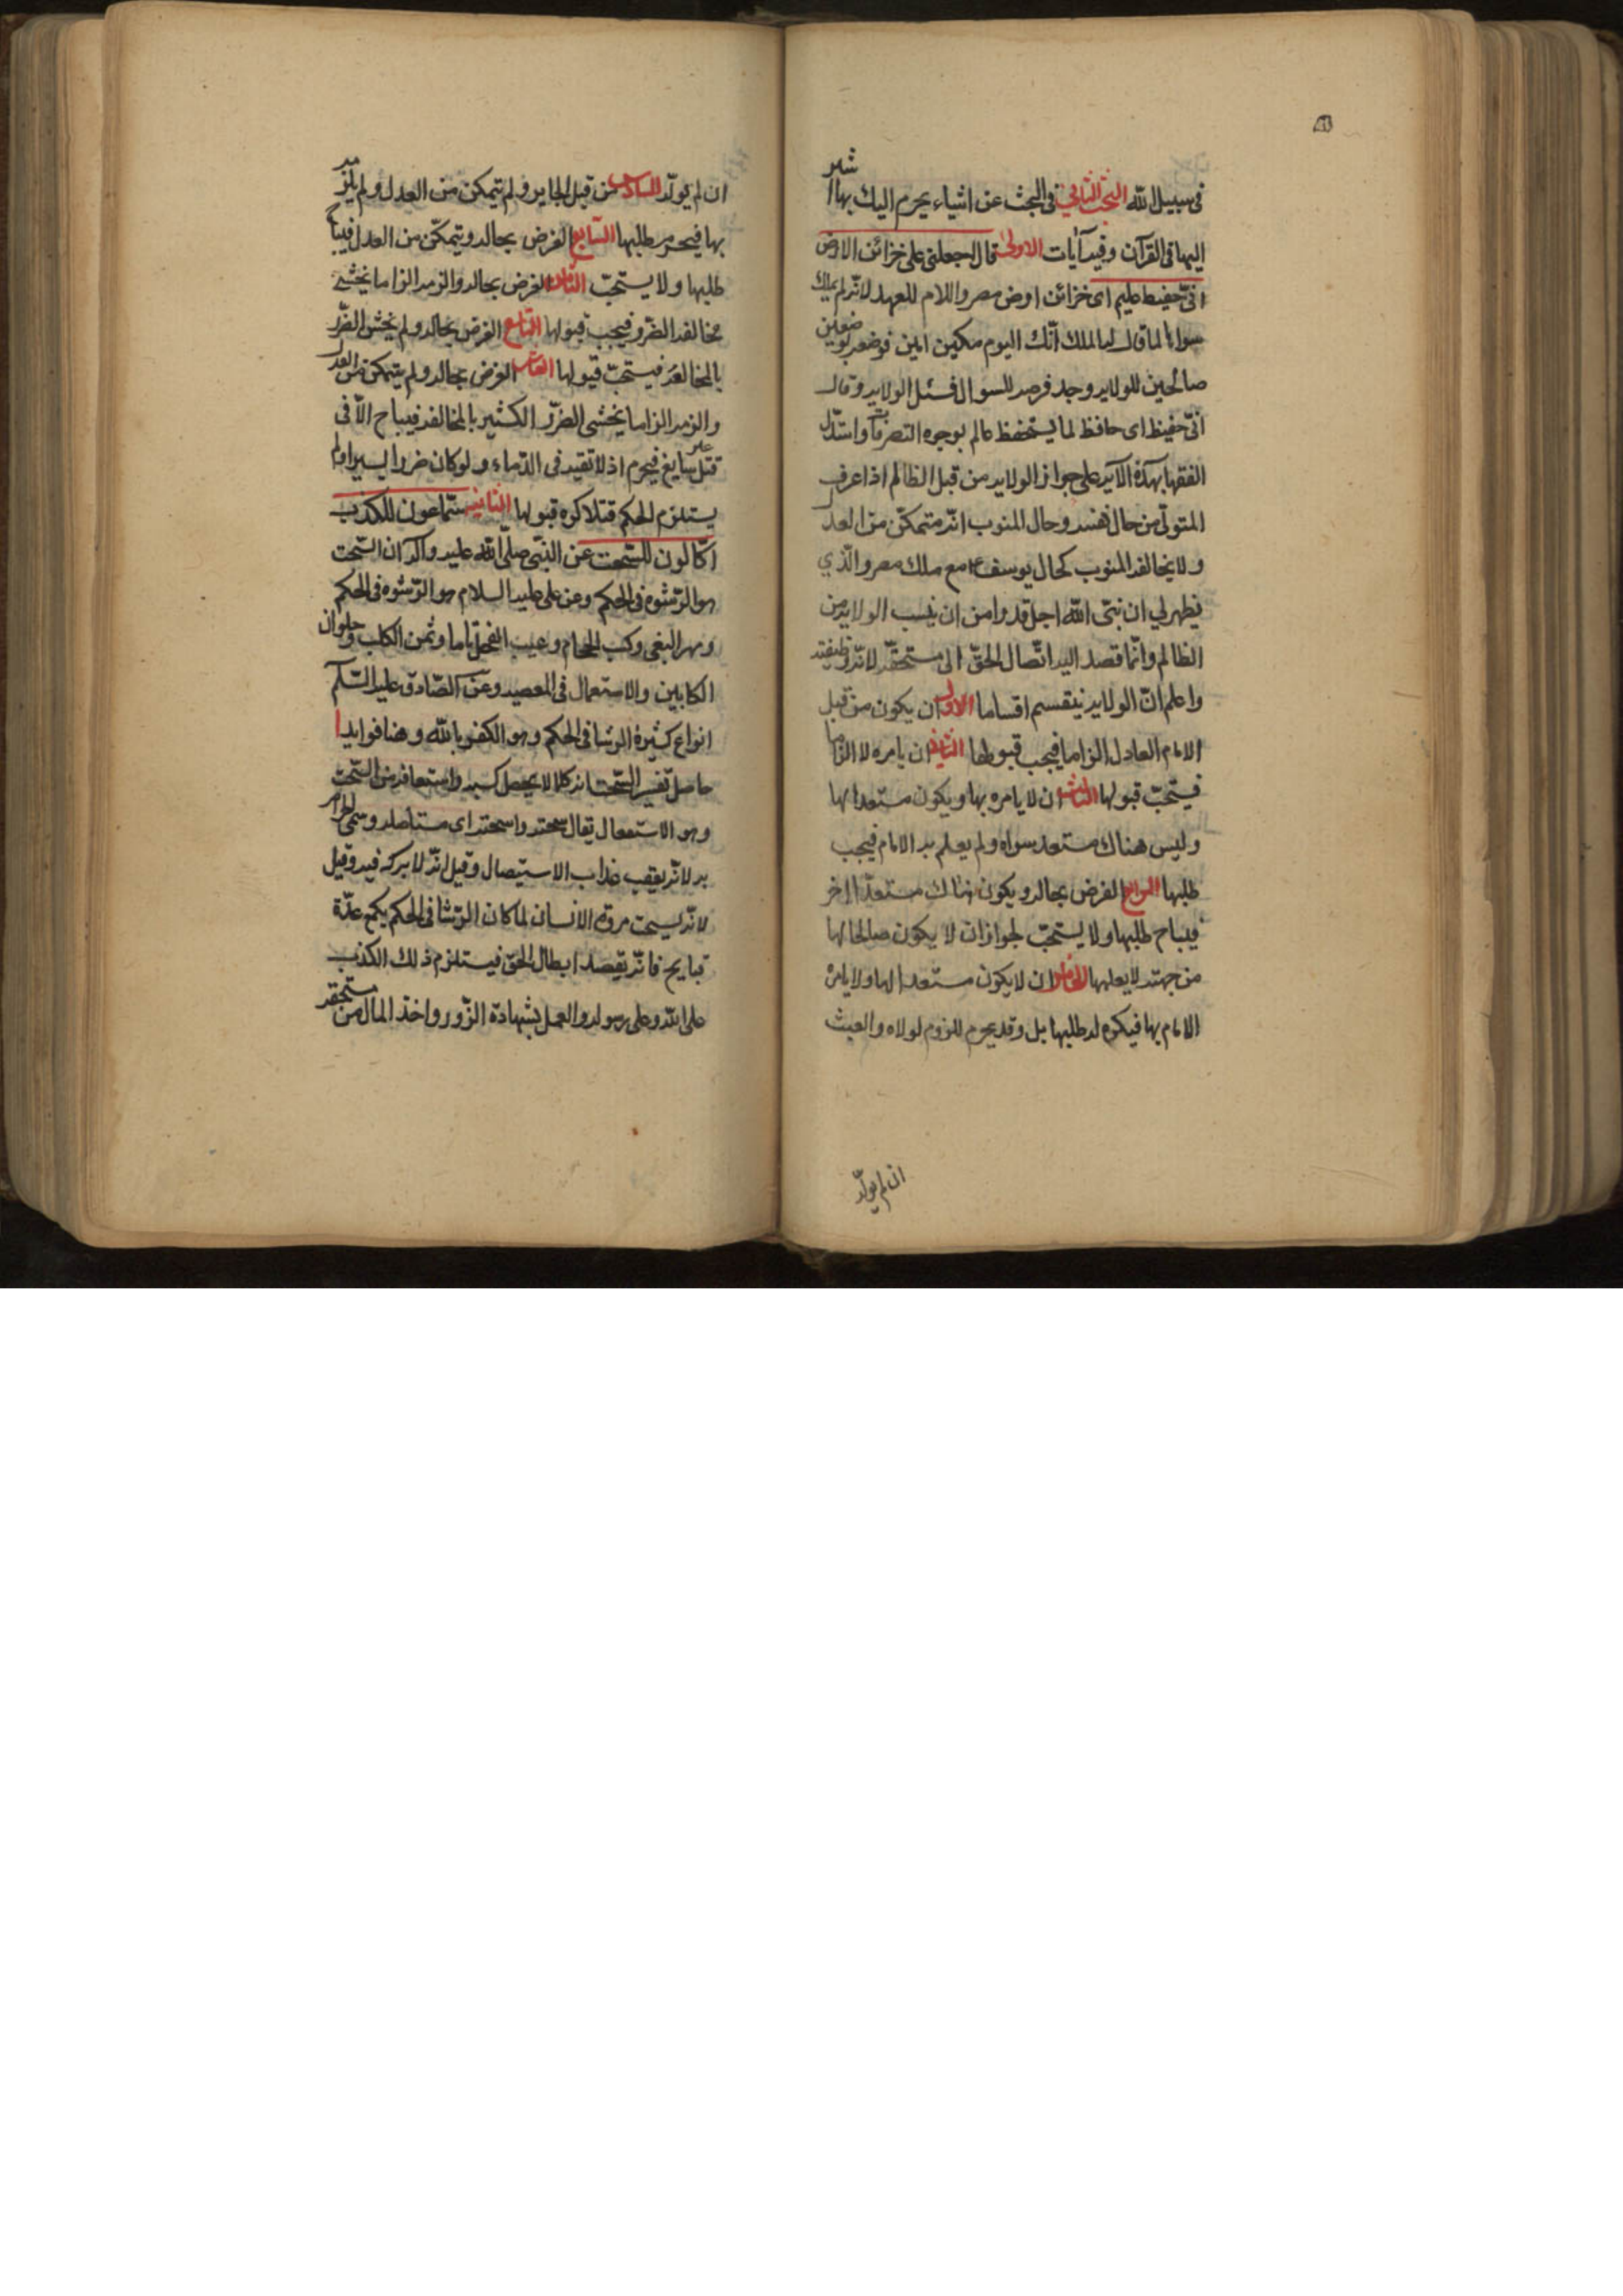 في سبيل الله البحث الثاني في البحث عن اشياء يحرم اليك بها اشير
اليها في القرآن وفيه آيات الاولى قال اجعلني على خزائن الارض
انّي حفيظ عليم اى خزائن ارض مصر واللام للعهد لانّه لم يملك
سواها لما قال له الملك انّك اليوم مكين امين فوضعه بوضعين
صالحين للولايه وجد فرصه للسوال فسئل الولايه وقال
انّي حفيظ اى حافظ لما يستحفظ عالم بوجوه التصرفات واستدّل
الفقها بهذه الآيه على جواز الولايه من قبل الظالم اذا عرف
المتولّي من حال نفسه وحال المنوب انّه متمكّن من العدل
ولا يخالفه المنوب كحال يوسف ع مع ملك مصر والّذي
يظهر لي ان نبيّ الله اجل قدرا من ان ينسب الولايه من
الظالم وانّما قصد اليه اتّصال الحقّ الى مستحقّه لانّه وظيفته
واعلم انّ الولايه ينقسم اقساما الاول ان يكون من قبل
الامام العادل الزاما فيجب قبولها الثاني ان يامره لا الزاما
فيستحبّ قبولها الثالث ان لا يامره بها ويكون مستعدا لها
وليس هناك مستعد سواه ولم يعلم به الامام فيجب
طلبها الرابع الفرض بحاله ويكون هناك مستعدّا اخر
فيباح طلبها ولا يستحبّ لجواز ان لا يكون صالحا لها
من جهته لا يعلمها الخامس ان لا يكون مستعدا لها ولا يامره
الامام بها فيكره له طلبها بل وقد يحرم للزوم لولاه والعبث
ان لم يولّه
ان لم يولّه السادس من قبل الجاير ولم يتمكن من العدل ولم يلزمه
بها فيحرم طلبها السّابع الفرض بحاله ويتمكّن من العدل فيباح
طلبها ولا يستحبّ الثامن الفرض بحاله والزمه الزاما يخشى
مخالفه الضّرر فيجب قبولها التاسع الفرض بحاله ولم يخش الضّرر
بالمخالفه فيستحبّ قبولها العاشر الفرض بحاله ولم يتمكن من العدل
والزمه الزاما يخشى الضّرر الكثير بالمخالفه فيباح الّا في
قتل غير سايغ فيحرم اذ لا تقيه في الدّماء ولو كان ضررا يسيرا ولم
يستلزم الحكم قتلا كره قبولها الثانيه سمّاعون للكذب
اكّالون للسّحت عن النبيّ صلى الله عليه وآله ان السّحت
هو الرّشوه في الحكم وعن علي عليه السلام هو الرّشوه في الحكم
ومهر البغي وكسب الحجّام وعسب الفحل وثمن الكلب وحلوان
الكاهن والاستعمال في المعصيه وعن الصّادق عليه السّلم
انواع كثيرة الرشا في الحكم وهو الكفر بالله وهنا فوايد ا
حاصل تفسير السّحت انه كلما لا يحصل كسبه واشتقاقه من السّحت
وهو الاستيصال يقال سحته واسحته اى مستأصله وسمّي الحرام
به لانّه يعقب عذاب الاستيصال وقيل لانّه لا بركة فيه وقيل
لانّه يسحت مروّة الانسان لما كان الرّشا في الحكم يجمع عدّة
قبايح فانّه يقصد ابطال الحق فيستلزم ذلك الكذب
على الله وعلى رسوله والعمل بشهادة الزّور واخذ المال من مستحقه